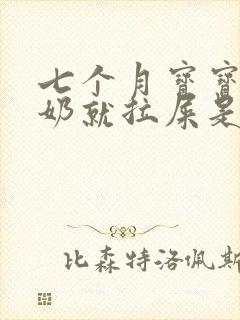 七个月宝宝
奶就拉屎是
比森特洛佩斯